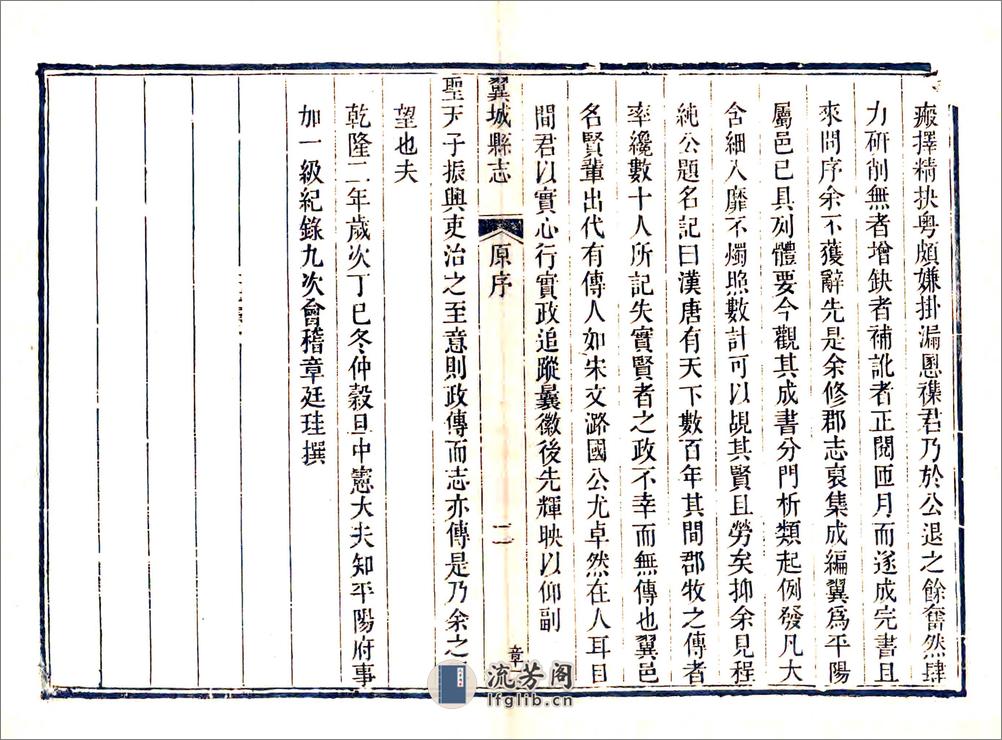 癍擇精抉粤頗嫌掛漏慁襍君乃於公退之餘奮然肆
力研削無者增缺者補訛者正閱匝月而遂成完書且
來問序余不獲辭先是余修郡志裒集成編翼爲平陽
屬邑已具列體要今觀其成書分門析類起例發凡大
含細入靡不燭照數計可以覘其賢且勞矣抑余見程
純公題名記曰漢唐有天下數百年其間郡牧之傳者
率纔數十人所記失實賢者之政不幸而無傳也翼邑
名賢輩出代有傳人如宋文潞國公尤卓然在人耳目
間君以實心行實政追蹤曩徽後先輝映以仰副
翼城縣志
原序
二
章
聖天子振興吏治之至意則政傳而志亦傳是乃余之
望也夫
乾隆二年歲次丁巳冬仲穀旦中憲大夫知平陽府事
加一級紀錄九次會稽章廷珪撰
流芳阁
lfglib.cn